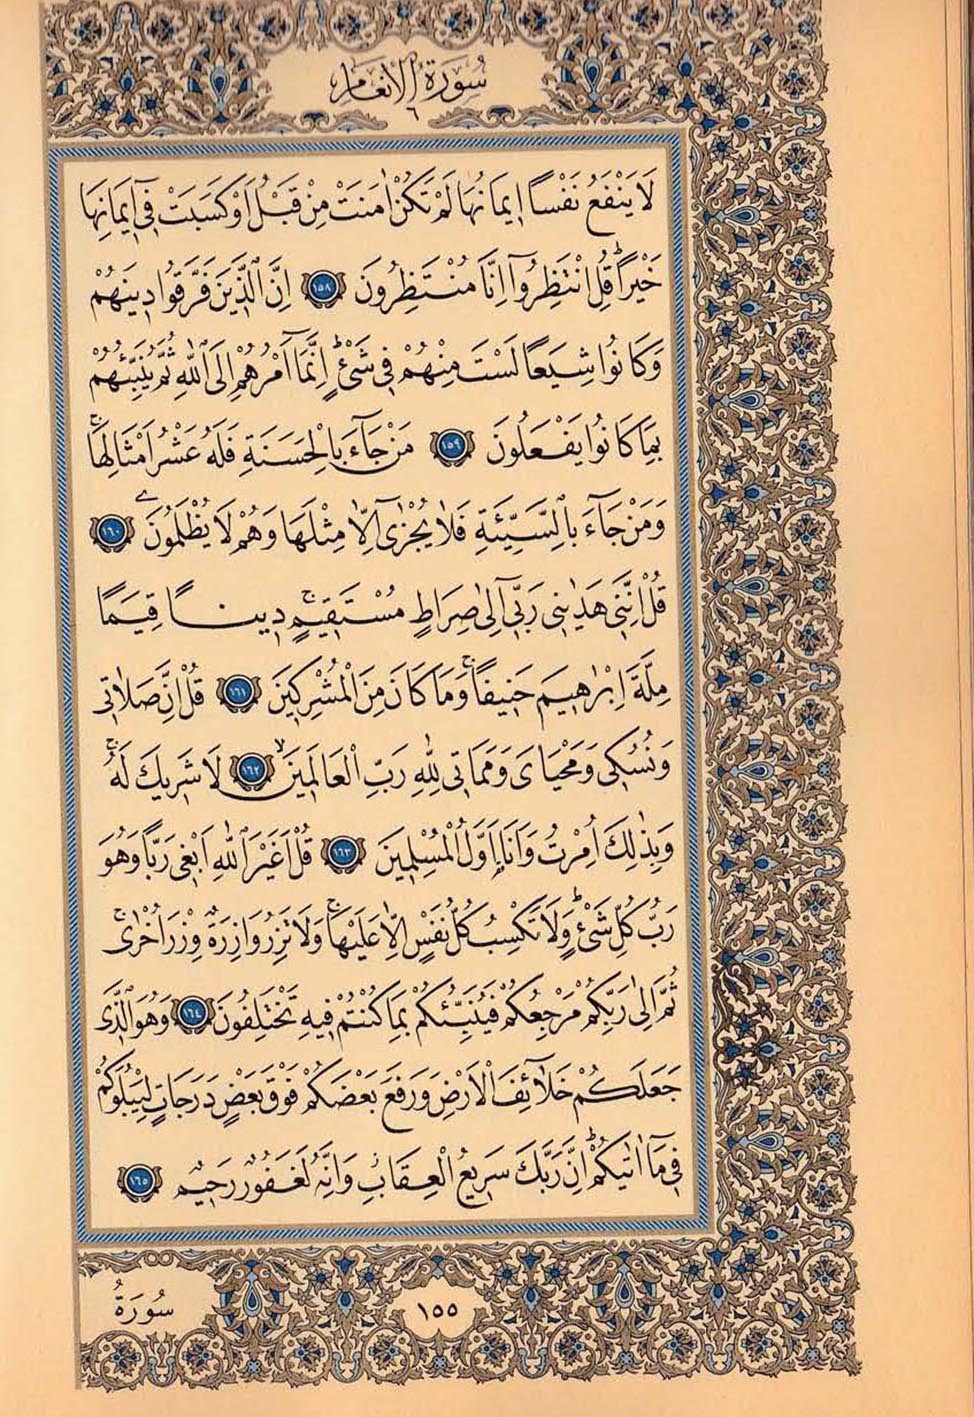 سُورَةُ الْاَنْعَامِ
٦
لَا يَنْفَعُ نَفْسًا اِيمَانُهَا لَمْ تَكُنْ اٰمَنَتْ مِنْ قَبْلُ اَوْ كَسَبَتْ فِٓى اِيمَانِهَا
خَيْرًاۜ قُلِ انْتَظِرُٓوا اِنَّا مُنْتَظِرُونَ ١٥٨ اِنَّ الَّذٖينَ فَرَّقُوا دٖينَهُمْ
وَكَانُوا شِيَعًا لَسْتَ مِنْهُمْ فٖى شَىْءٍۜ اِنَّمَٓا اَمْرُهُمْ اِلَى اللّٰهِ ثُمَّ يُنَبِّئُهُمْ
بِمَا كَانُوا يَفْعَلُونَ ١٥٩ مَنْ جَٓاءَ بِالْحَسَنَةِ فَلَهُ عَشْرُ اَمْثَالِهَاۚ
وَمَنْ جَٓاءَ بِالسَّيِّئَةِ فَلَا يُجْزٰٓى اِلَّا مِثْلَهَا وَهُمْ لَا يُظْلَمُونَ ١٦٠
قُلْ اِنَّنٖى هَدٰينٖى رَبّٖٓى اِلٰى صِرَاطٍ مُسْتَقٖيمٍۚ دٖينًا قِيَمًا
مِلَّةَ اِبْرٰهٖيمَ حَنٖيفًاۚ وَمَا كَانَ مِنَ الْمُشْرِكٖينَ ١٦١ قُلْ اِنَّ صَلَاتٖى
وَنُسُكٖى وَمَحْيَاىَ وَمَمَاتٖى لِلّٰهِ رَبِّ الْعَالَمٖينَۙ ١٦٢ لَا شَرٖيكَ لَهُۚ
وَبِذٰلِكَ اُمِرْتُ وَاَنَا اَوَّلُ الْمُسْلِمٖينَ ١٦٣ قُلْ اَغَيْرَ اللّٰهِ اَبْغٖى رَبًّا وَهُوَ
رَبُّ كُلِّ شَىْءٍۜ وَلَا تَكْسِبُ كُلُّ نَفْسٍ اِلَّا عَلَيْهَاۚ وَلَا تَزِرُ وَازِرَةٌ وِزْرَ اُخْرٰىۚ
ثُمَّ اِلٰى رَبِّكُمْ مَرْجِعُكُمْ فَيُنَبِّئُكُمْ بِمَا كُنْتُمْ فٖيهِ تَخْتَلِفُونَ ١٦٤ وَهُوَ الَّذٖى
جَعَلَكُمْ خَلَٓائِفَ الْاَرْضِ وَرَفَعَ بَعْضَكُمْ فَوْقَ بَعْضٍ دَرَجَاتٍ لِيَبْلُوَكُمْ
فٖى مَٓا اٰتٰيكُمْۜ اِنَّ رَبَّكَ سَرٖيعُ الْعِقَابِ وَاِنَّهُ لَغَفُورٌ رَحٖيمٌ ١٦٥
١٥٥
سُورَةُ